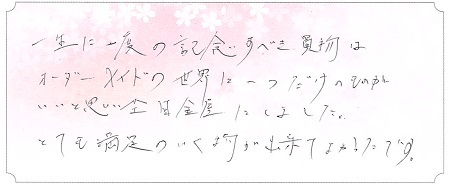 一生に一度の記念すべき買物は
オーダーメイドの世界に一つだけのものが
いいと思い杢目金屋にしました。
とても満足のいく物が出来てよかったです。